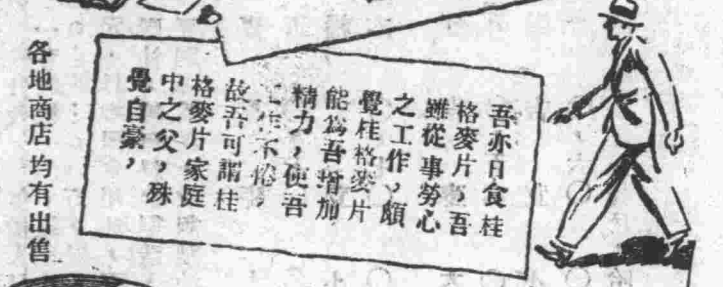 吾亦日食桂
格麥片，吾
雖從事勞心
之工作，頗
覺桂格麥片
能爲吾增加
精力，使吾
工作不倦，
故吾可謂桂
格麥片家庭
中之父，殊
覺自豪，
各地商店均有出售